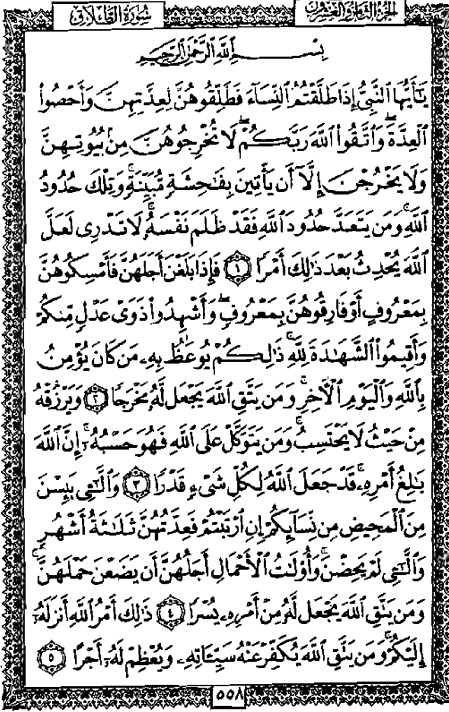 الجزء الثامن والعشرون
سُورَةُ الطَّلَاقِ
بِسْمِ اللَّهِ الرَّحْمَٰنِ الرَّحِيمِ
يَٰٓأَيُّهَا ٱلنَّبِىُّ إِذَا طَلَّقْتُمُ ٱلنِّسَآءَ فَطَلِّقُوهُنَّ لِعِدَّتِهِنَّ وَأَحْصُوا۟
ٱلْعِدَّةَ ۖ وَٱتَّقُوا۟ ٱللَّهَ رَبَّكُمْ ۖ لَا تُخْرِجُوهُنَّ مِنۢ بُيُوتِهِنَّ
وَلَا يَخْرُجْنَ إِلَّآ أَن يَأْتِينَ بِفَٰحِشَةٍ مُّبَيِّنَةٍ ۚ وَتِلْكَ حُدُودُ
ٱللَّهِ ۚ وَمَن يَتَعَدَّ حُدُودَ ٱللَّهِ فَقَدْ ظَلَمَ نَفْسَهُۥ ۚ لَا تَدْرِى لَعَلَّ
ٱللَّهَ يُحْدِثُ بَعْدَ ذَٰلِكَ أَمْرًا ١ فَإِذَا بَلَغْنَ أَجَلَهُنَّ فَأَمْسِكُوهُنَّ
بِمَعْرُوفٍ أَوْ فَارِقُوهُنَّ بِمَعْرُوفٍ وَأَشْهِدُوا۟ ذَوَىْ عَدْلٍ مِّنكُمْ
وَأَقِيمُوا۟ ٱلشَّهَٰدَةَ لِلَّهِ ۚ ذَٰلِكُمْ يُوعَظُ بِهِۦ مَن كَانَ يُؤْمِنُ
بِٱللَّهِ وَٱلْيَوْمِ ٱلْءَاخِرِ ۚ وَمَن يَتَّقِ ٱللَّهَ يَجْعَل لَّهُۥ مَخْرَجًا ٢ وَيَرْزُقْهُ
مِنْ حَيْثُ لَا يَحْتَسِبُ ۚ وَمَن يَتَوَكَّلْ عَلَى ٱللَّهِ فَهُوَ حَسْبُهُۥٓ ۚ إِنَّ ٱللَّهَ
بَٰلِغُ أَمْرِهِۦ ۚ قَدْ جَعَلَ ٱللَّهُ لِكُلِّ شَىْءٍ قَدْرًا ٣ وَٱلَّٰٓـِٔى يَئِسْنَ
مِنَ ٱلْمَحِيضِ مِن نِّسَآئِكُمْ إِنِ ٱرْتَبْتُمْ فَعِدَّتُهُنَّ ثَلَٰثَةُ أَشْهُرٍ
وَٱلَّٰٓـِٔى لَمْ يَحِضْنَ ۚ وَأُو۟لَٰتُ ٱلْأَحْمَالِ أَجَلُهُنَّ أَن يَضَعْنَ حَمْلَهُنَّ ۚ
وَمَن يَتَّقِ ٱللَّهَ يَجْعَل لَّهُۥ مِنْ أَمْرِهِۦ يُسْرًا ٤ ذَٰلِكَ أَمْرُ ٱللَّهِ أَنزَلَهُۥٓ
إِلَيْكُمْ ۚ وَمَن يَتَّقِ ٱللَّهَ يُكَفِّرْ عَنْهُ سَيِّـَٔاتِهِۦ وَيُعْظِمْ لَهُۥٓ أَجْرًا ٥
٥٥٨